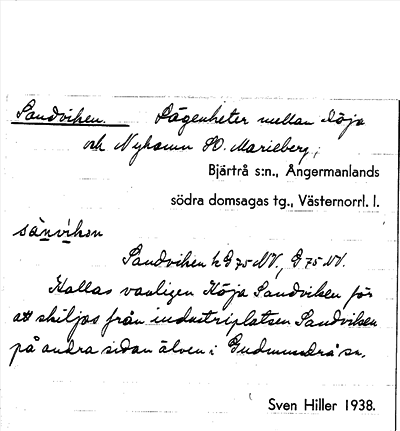 Sandviken. Lägenheter mellan Köja
och Nyhamn SO. Marieberg;
Bjärtrå s:n., Ångermanlands
södra domsagas tg., Västernorrl. l.
sànvìkən
Sandviken k G 75 NV, G 75 NV.
Kallas vanligen Köja Sandviken för
att skiljas från industriplatsen Sandviken
på andra sidan älven i Gudmundrå sn.
Sven Hiller 1938.